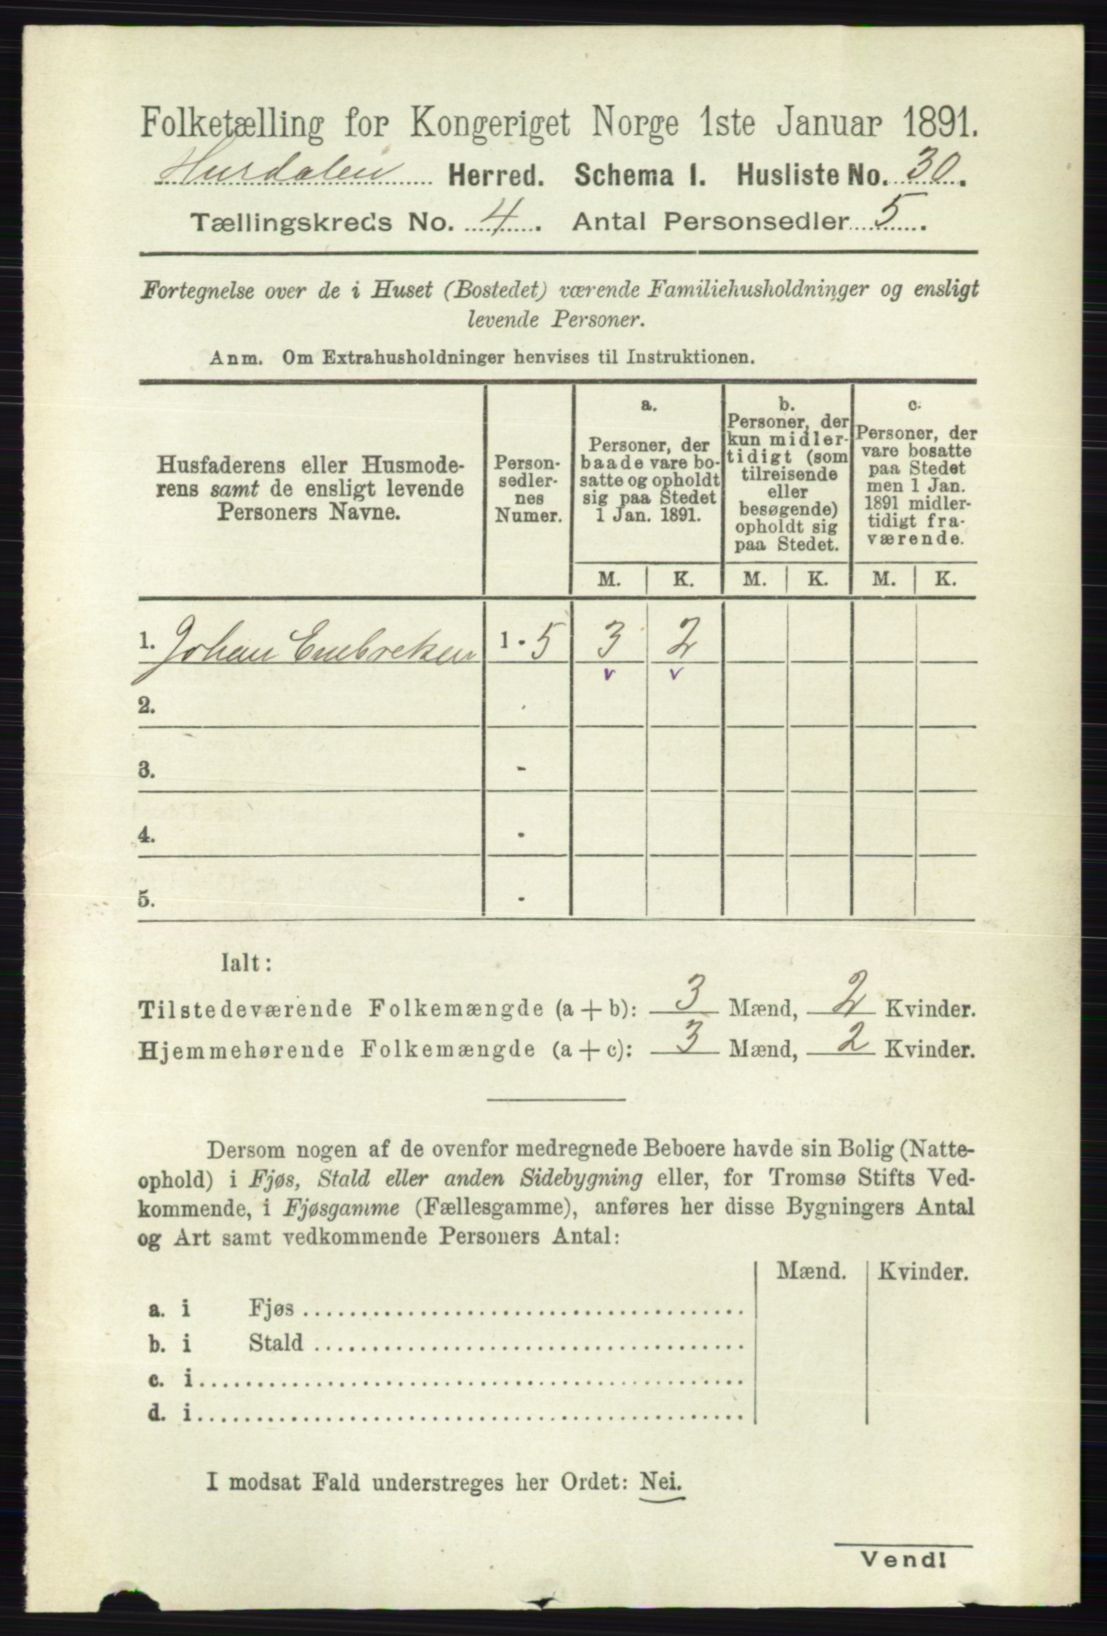 Folketælling for Kongeriget Norge 1ste Januar 1891.
Hurdalen Herred. Schema I. Husliste No. 30.
Tællingskreds No. 4. Antal Personsedler 5.
Fortegnelse over de i Huset (Bostedet) værende Familiehusholdninger og ensligt
levende Personer.
Anm. Om Extrahusholdninger henvises til Instruktionen.
Husfaderens eller Husmode-
rens samt de ensligt levende
Personers Navne.
Person-
sedler-
nes
Numer.
a.
Personer, der
baade vare bo-
satte og opholdt
sig paa Stedet
1 Jan. 1891.
b.
Personer, der
kun midler-
tidigt (som
tilreisende
eller
besøgende)
opholdt sig
paa Stedet.
c.
Personer, der
vare bosatte
paa Stedet
men 1 Jan.
1891 midler-
tidigt fra-
værende.
M. K. M. K. M. K.
1. Johan Embretsen 1 - 5 3 2
v v
2.
3. -
4. -
5. -
Ialt:
Tilstedeværende Folkemængde (a + b): 3 Mænd, 2 Kvinder.
Hjemmehørende Folkemængde (a + c): 3 Mænd, 2 Kvinder.
Dersom nogen af de ovenfor medregnede Beboere havde sin Bolig (Natte-
ophold) i Fjøs, Stald eller anden Sidebygning eller, for Tromsø Stifts Ved-
kommende, i Fjøsgamme (Fællesgamme), anføres her disse Bygningers Antal
og Art samt vedkommende Personers Antal:
Mænd. Kvinder.
a. i Fjøs
b. i Stald
c. i
d. i
I modsat Fald understreges her Ordet: Nei.
Vend!